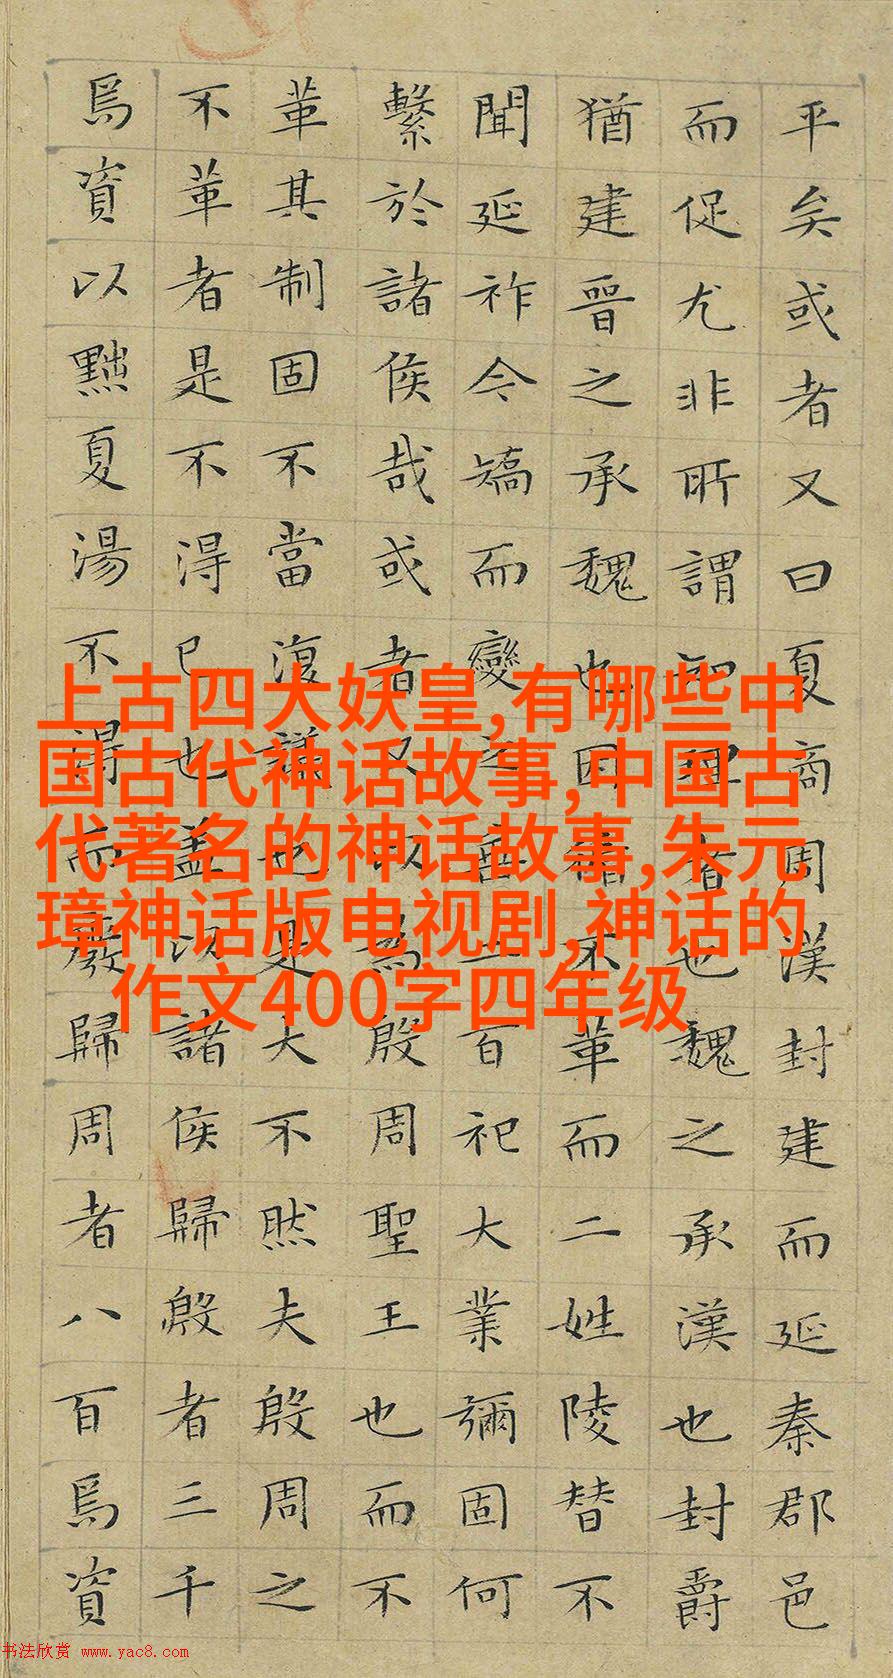 平矣或者又曰夏商周漢封建而延秦郡邑
而促尤非所謂知理者也魏之承漢也封爵
猶建晉之承魏也因循不革而二姓陵替不
聞延祚今矯而變之垂二百祀大業彌固何
繫於諸侯哉或者又以為殷周聖王也而不
革其制固不當復議也是大不然夫殷周之
不革者是不得已也蓋以諸侯歸殷者三千
焉資以黜夏湯不得而廢歸周者八百焉資
上古四大妖皇,有哪些中
国古代神话故事,中国古
代著名的神话故事,朱元
璋神话版电视剧,神话的
作文400字四年级
书法欣赏 www.yac8.com